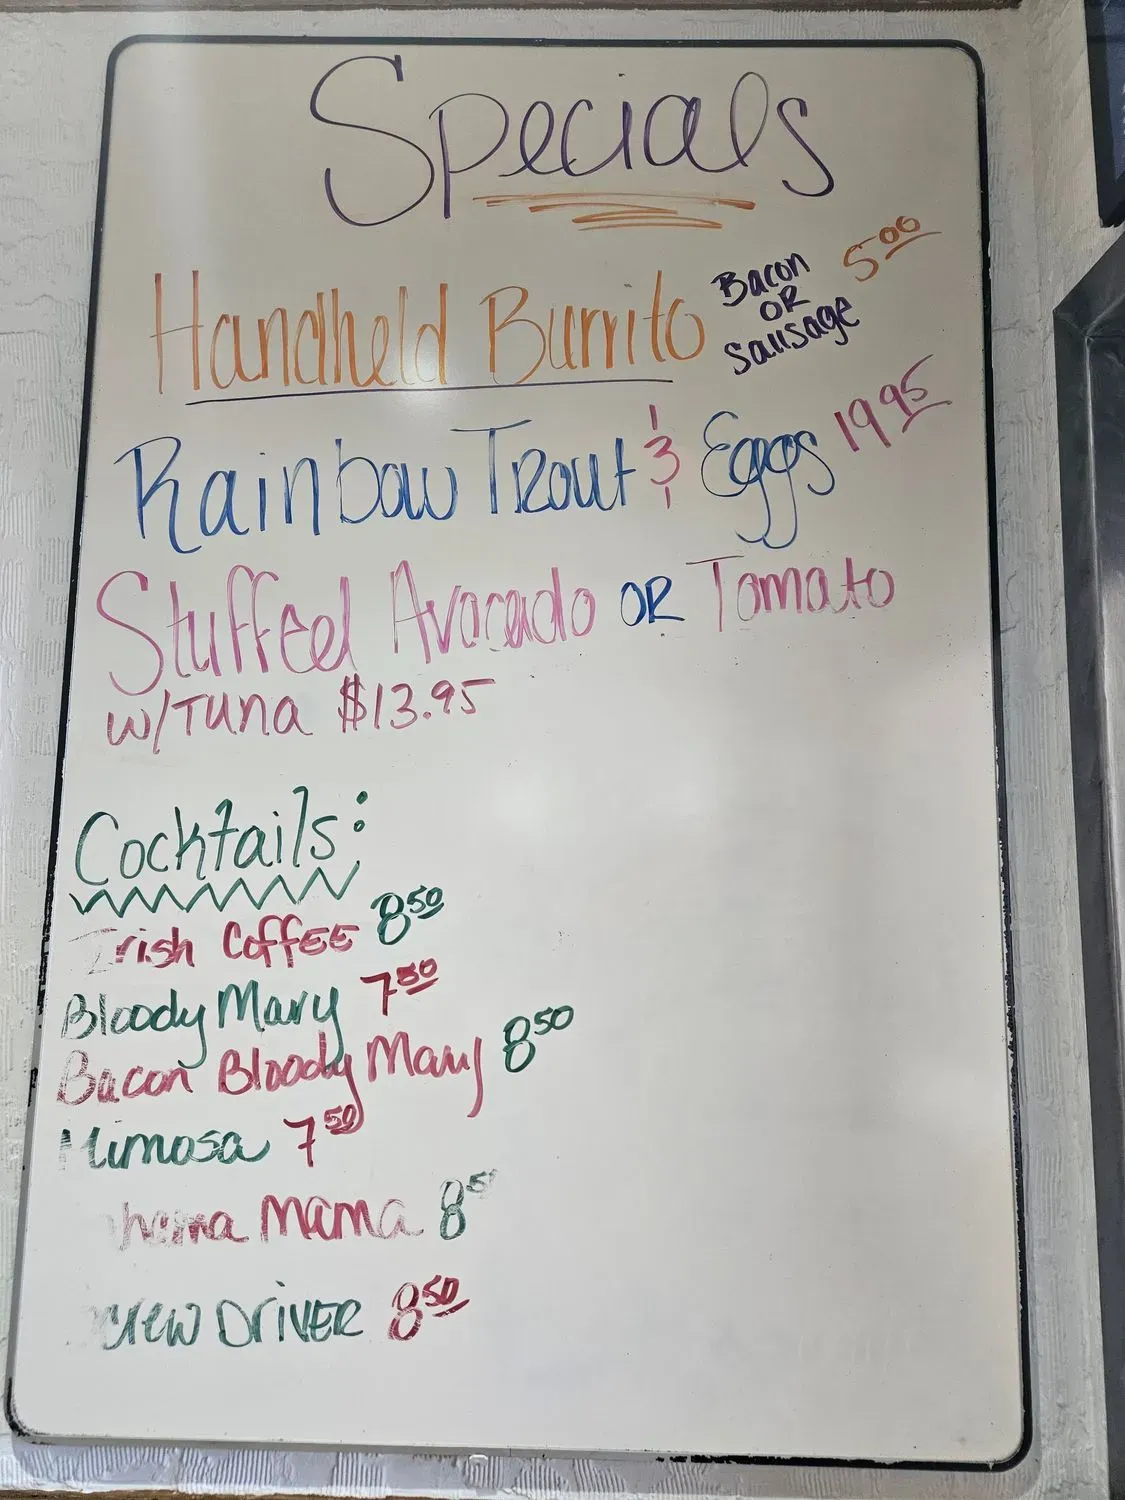 Specials
Handheld Burrito Bacon OR Sausage 5.00
Rainbow Trout & Eggs 19.95
Stuffed Avocado OR Tomato
w/Tuna $13.95
Cocktails:
Irish Coffee 8.50
Bloody Mary 7.50
Bacon Bloody Mary 8.50
Mimosa 7.50
Mama 8
Driver 8.50